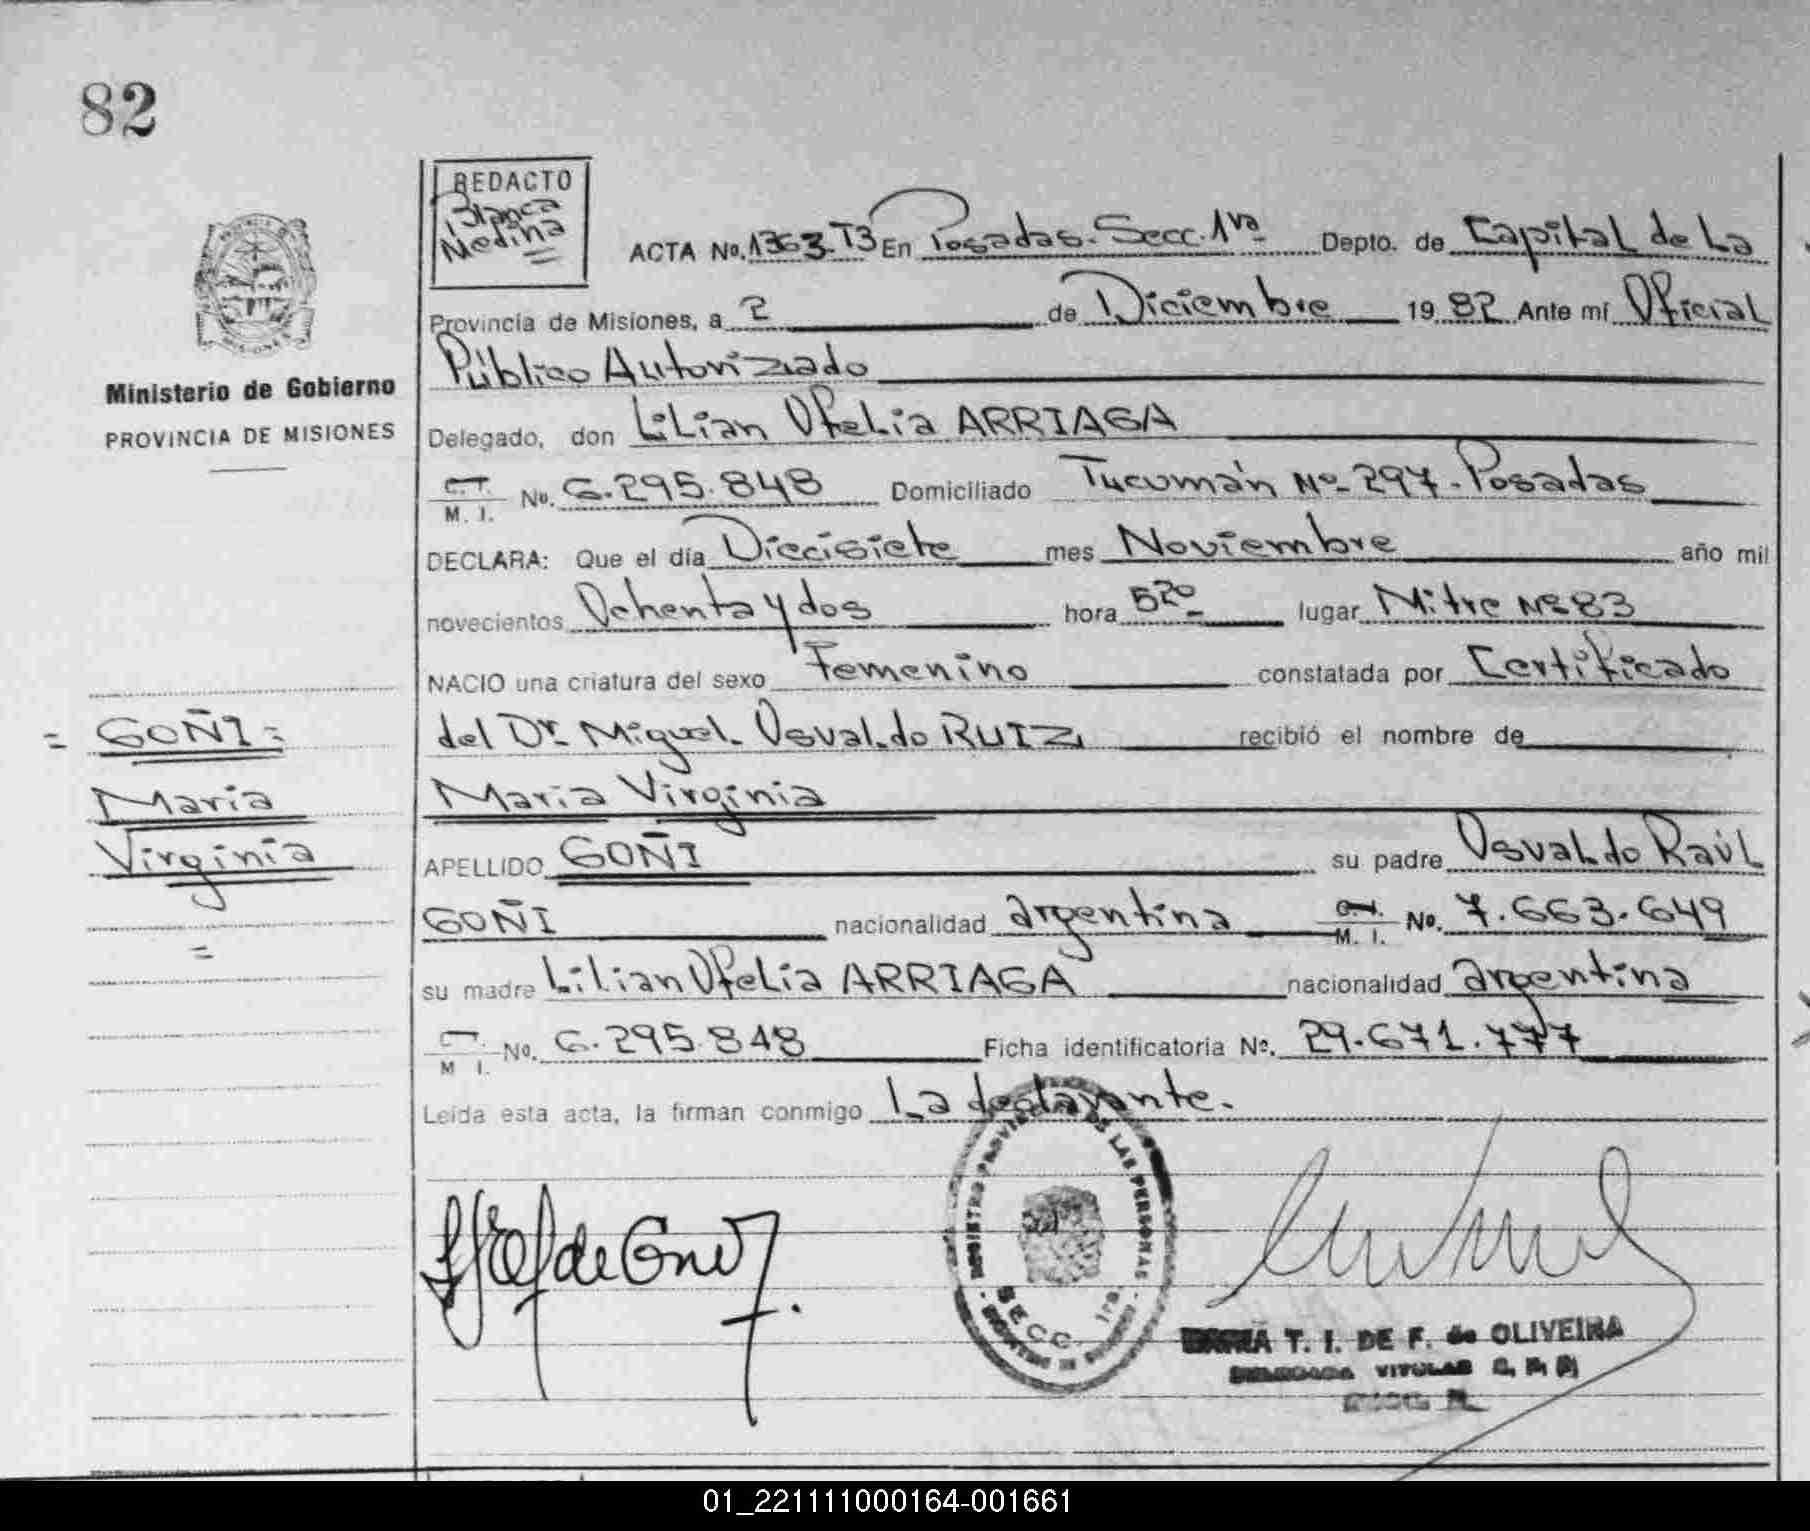 82
REDACTO
Blanca
Medina
ACTA No. 1363 T3 En Posadas. Secc. 1ra Depto. de Capital de La
Provincia de Misiones, a 2 de Diciembre 19 82 Ante mí Oficial
Público Autorizado
Ministerio de Gobierno
PROVINCIA DE MISIONES
Delegado, don Lilian Ofelia ARRIAGA
C.I. M. I. No. 6.295.848 Domiciliado Tucumán Nº 297 - Posadas
DECLARA: Que el día Diecisiete mes Noviembre año mil
novecientos Ochenta y dos hora 5 20 lugar Mitre Nº 83
NACIO una criatura del sexo Femenino constatada por Certificado
= GOÑI =
del Dr. Miguel Osvaldo RUIZ recibió el nombre de
Maria
Maria Virginia
Virginia
APELLIDO GOÑI su padre Osvaldo Raúl
GOÑI nacionalidad argentina M. I. No. 7.663.649
=
su madre Lilian Ofelia ARRIAGA nacionalidad argentina
M I. No. 6.295.848 Ficha identificatoria Nº. 29.671.777
Leída esta acta, la firman conmigo La declarante.
REGISTRO PROVINCIAL DE LAS PERSONAS
SECC. 1ra.
MARIA T. I. DE F. de OLIVEIRA
DELEGADA TITULAR
01_221111000164-001661